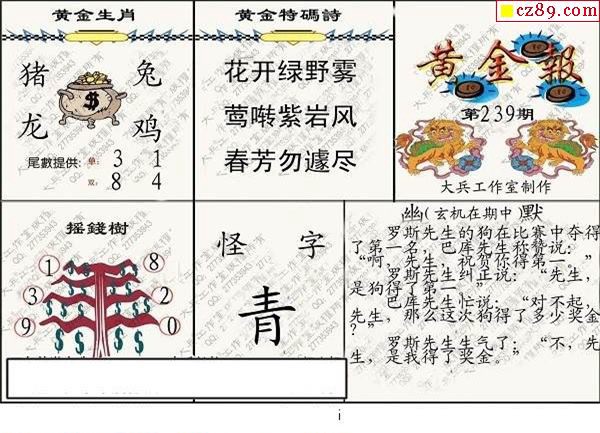 cz89.com
黄金生肖
猪 兔
龙 鸡
尾數提供: 单: 3 1
双: 8 4
黄金特碼詩
花开绿野雾
莺啭紫岩风
春芳勿遽尽
黄金報
第239期
大兵工作室制作
摇錢樹
1 8
3 2
9 0
怪 字
青
幽(玄机在期中)默
罗斯先生的狗在比赛中夺得
了第一名，巴库先生称赞说：
“啊，先生，祝贺你得第一。”
罗斯先生纠正说：“先生，
是狗得了第一。”
巴库先生忙说：“对不起，
先生，那么这次狗得了多少奖金
？”
罗斯先生生气了：“不，先
生，是我得了奖金。”
i